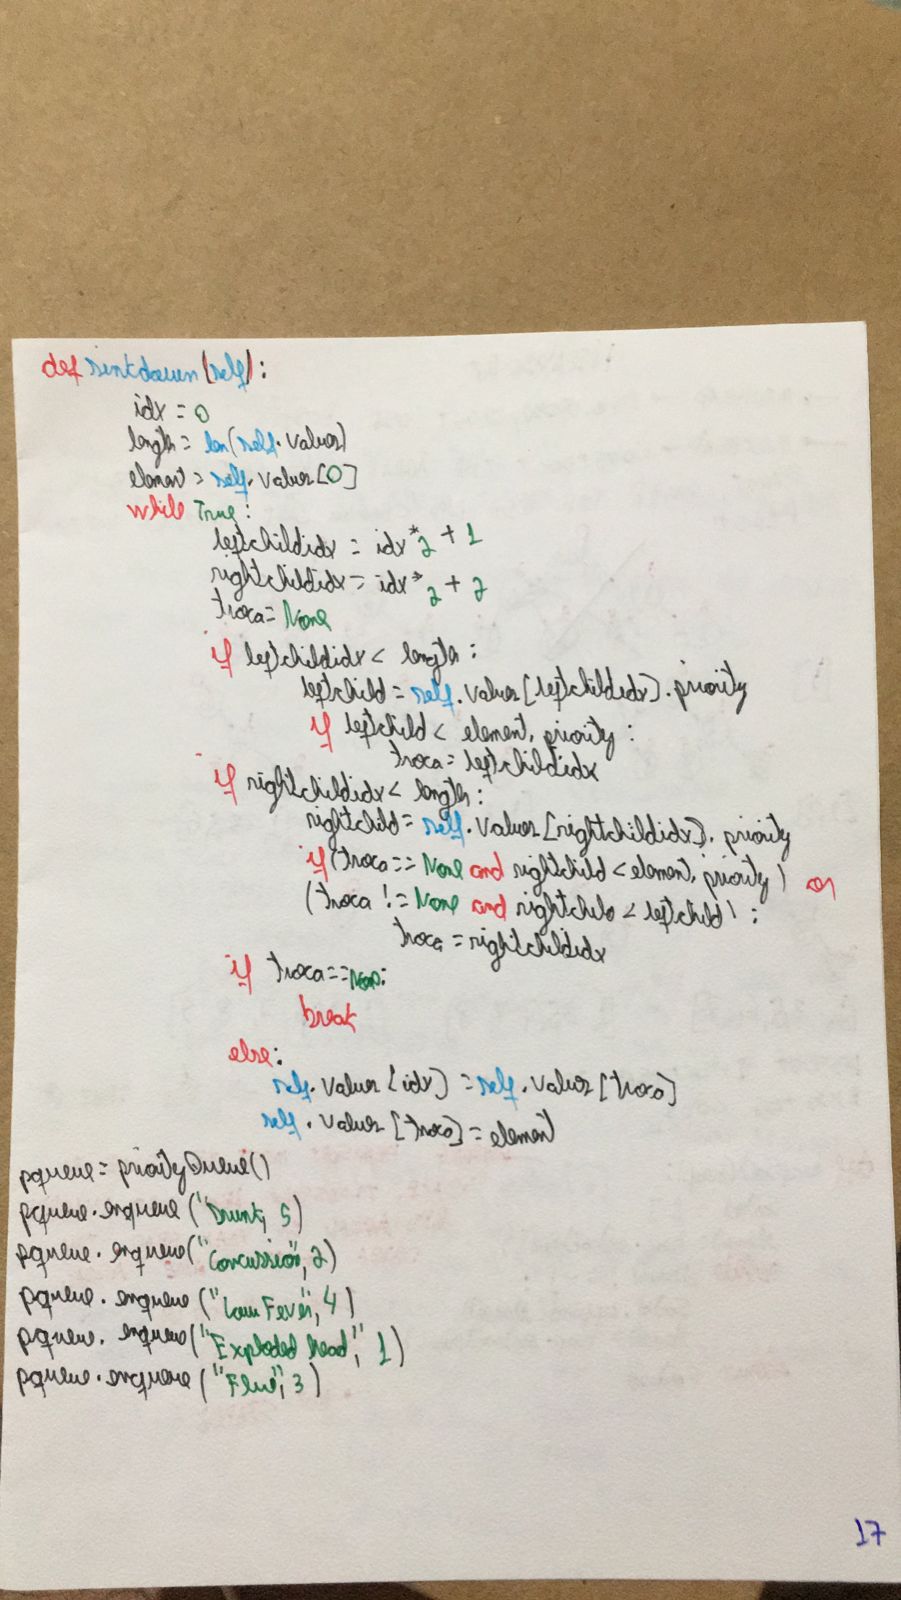 def sinkdown(self):
idx = 0
length = len(self.values)
element = self.values[0]
while True:
leftchildidx = idx*2 + 1
rightchildidx = idx*2 + 2
troca = None
if leftchildidx < length:
leftchild = self.values[leftchildidx].priority
if leftchild < element.priority:
troca = leftchildidx
if rightchildidx < length:
rightchild = self.values[rightchildidx].priority
if (troca == None and rightchild < element.priority) or
(troca != None and rightchild < leftchild):
troca = rightchildidx
if troca == None:
break
else:
self.values[idx] = self.values[troca]
self.values[troca] = element
pqueue = priorityQueue()
pqueue.enqueue("Drunk, 5)
pqueue.enqueue("Concussion", 2)
pqueue.enqueue("Low Fever", 4)
pqueue.enqueue("Exploded head", 1)
pqueue.enqueue("Flue", 3)
17